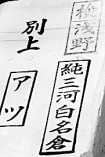 浅野
純三河白名倉
別上
アツ